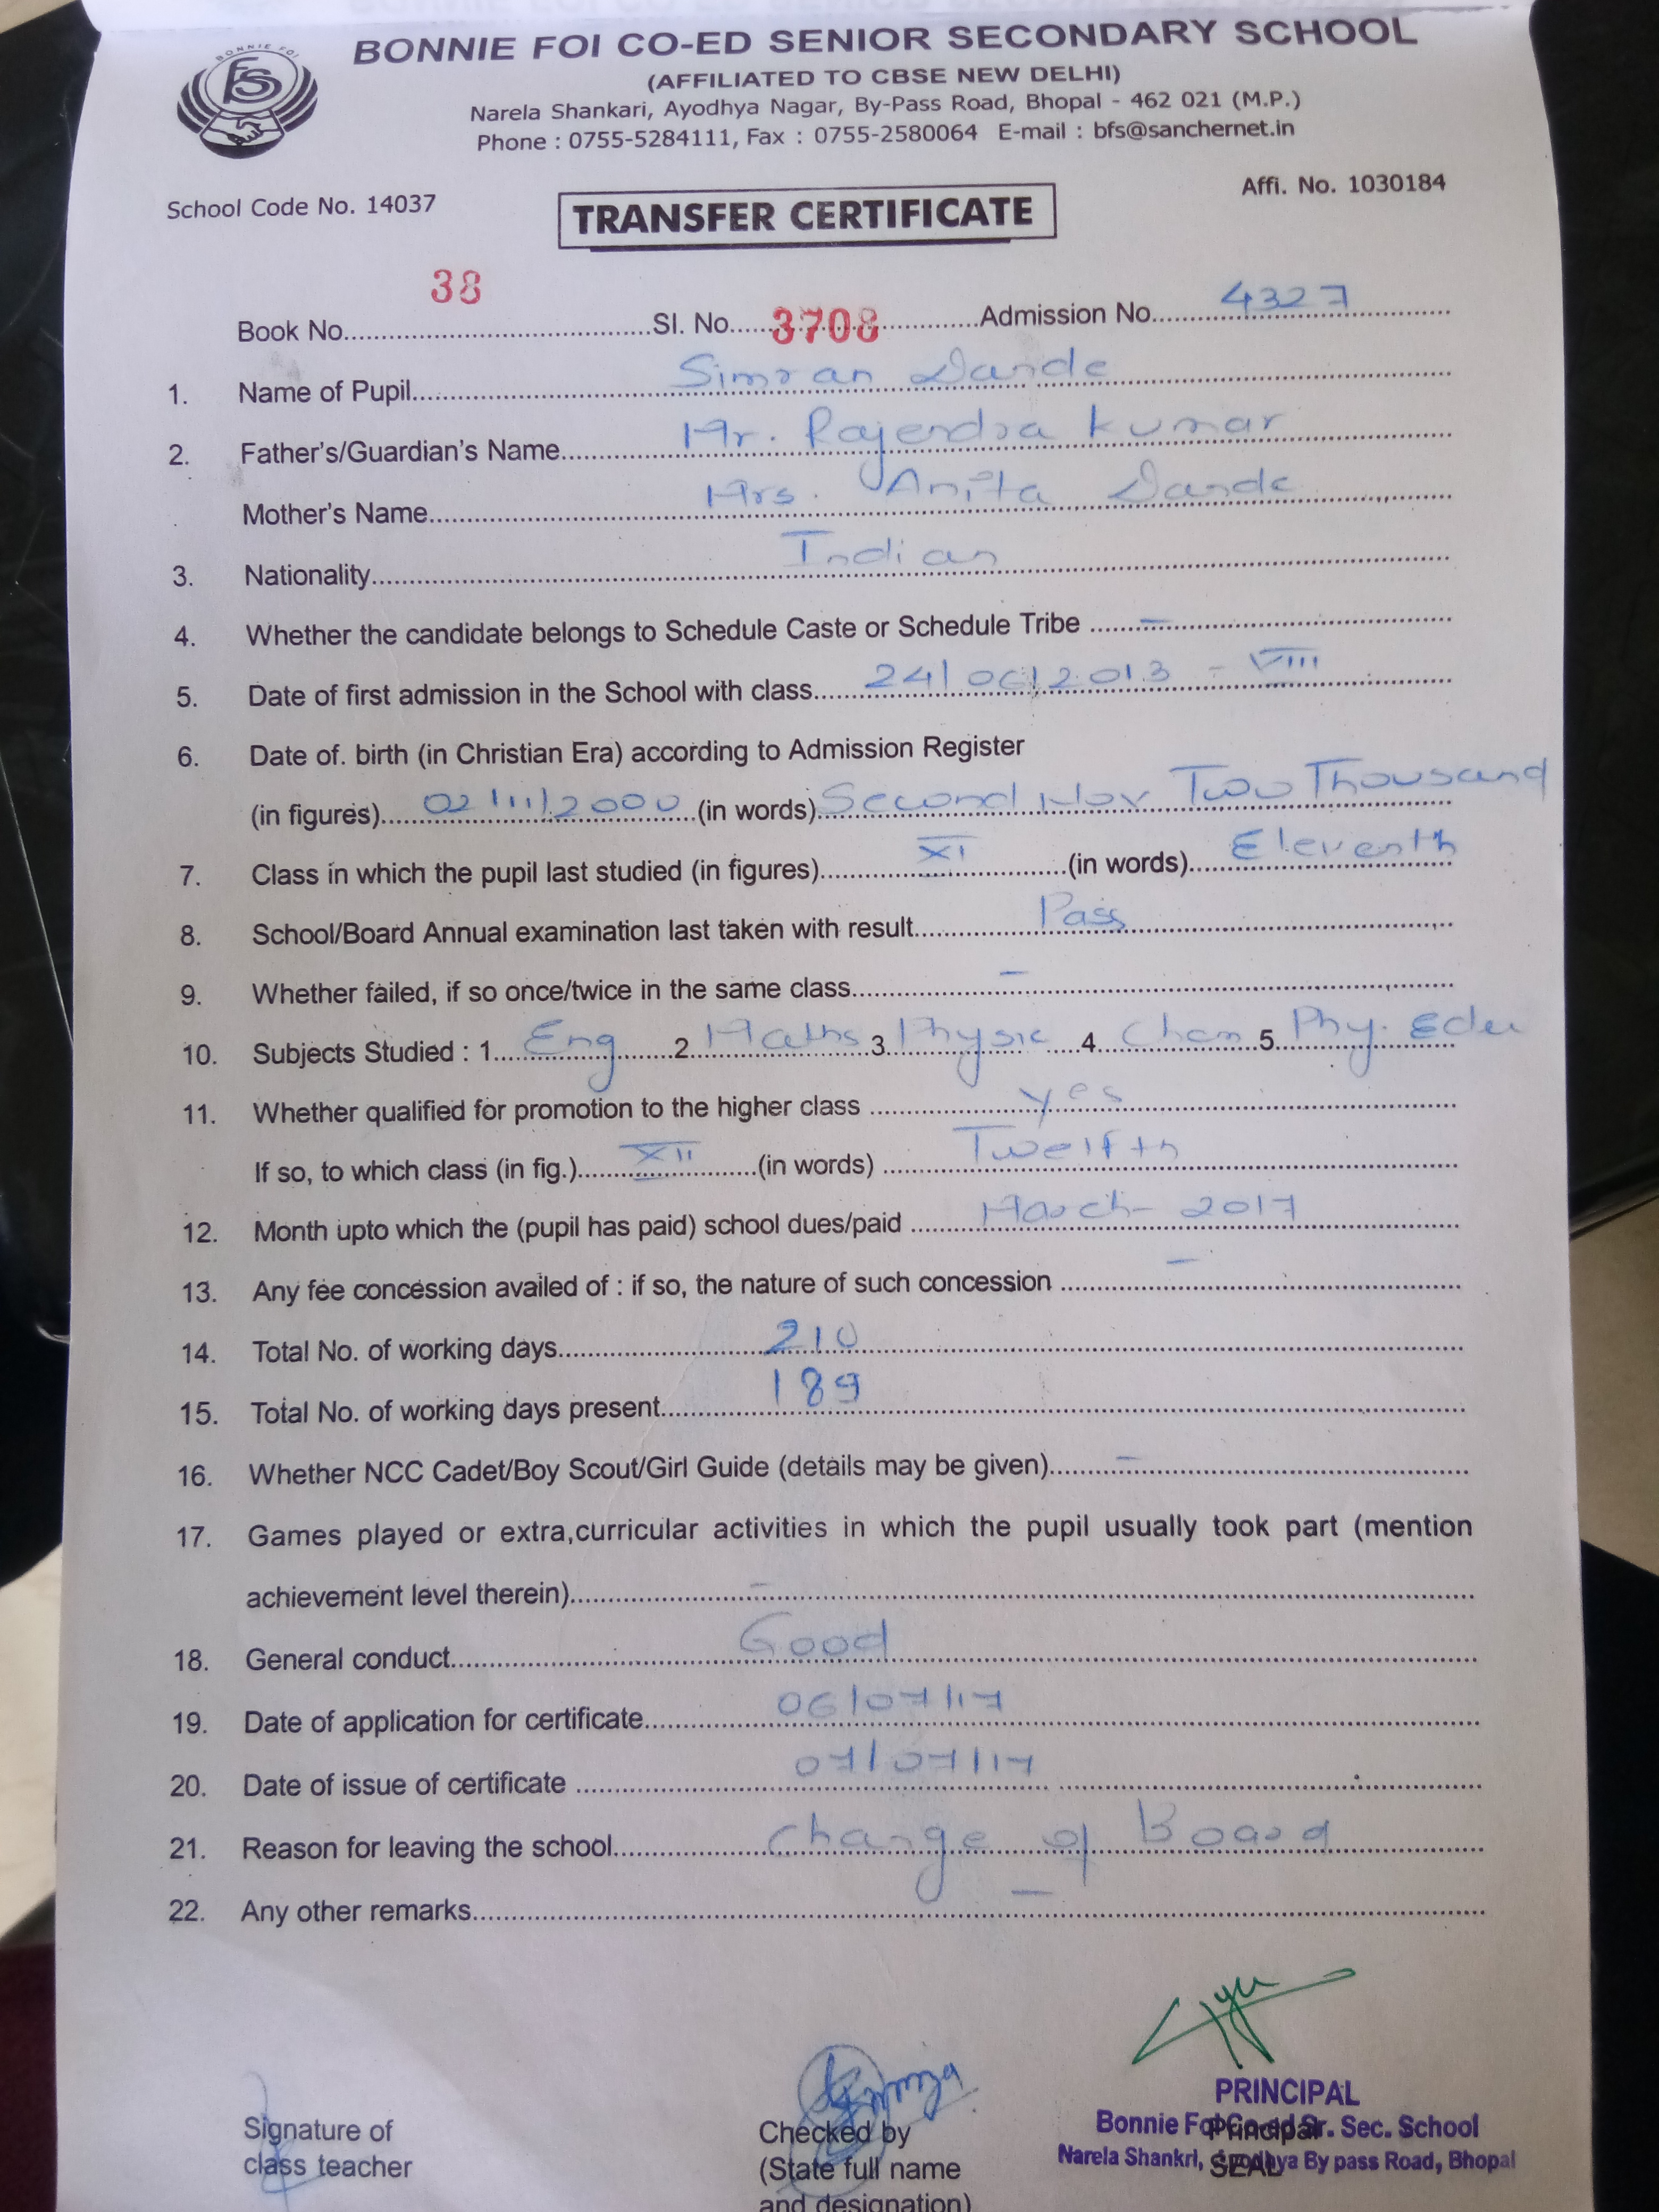 BONNIE FOI
BONNIE FOI CO-ED SENIOR SECONDARY SCHOOL
(AFFILIATED TO CBSE NEW DELHI)
Narela Shankari, Ayodhya Nagar, By-Pass Road, Bhopal - 462 021 (M.P.)
Phone : 0755-5284111, Fax : 0755-2580064 E-mail : bfs@sanchernet.in
School Code No. 14037
Affi. No. 1030184
TRANSFER CERTIFICATE
Book No. 38 Sl. No. 3708 Admission No. 4327
1. Name of Pupil Simran Dande
2. Father's/Guardian's Name Mr. Rajendra Kumar
Mother's Name Mrs. Anita Dande
3. Nationality Indian
4. Whether the candidate belongs to Schedule Caste or Schedule Tribe –
5. Date of first admission in the School with class 24/06/2013 - VIII
6. Date of. birth (in Christian Era) according to Admission Register
(in figures) 02/11/2000 (in words) Second Nov Two Thousand
7. Class in which the pupil last studied (in figures) XI (in words) Eleventh
8. School/Board Annual examination last taken with result Pass
9. Whether failed, if so once/twice in the same class –
10. Subjects Studied : 1. Eng 2. Maths 3. Physic 4. Chem 5. Phy. Edu
11. Whether qualified for promotion to the higher class yes
If so, to which class (in fig.) XII (in words) Twelfth
12. Month upto which the (pupil has paid) school dues/paid March - 2017
13. Any fee concession availed of : if so, the nature of such concession –
14. Total No. of working days 210
15. Total No. of working days present 189
16. Whether NCC Cadet/Boy Scout/Girl Guide (details may be given) –
17. Games played or extra,curricular activities in which the pupil usually took part (mention
achievement level therein) –
18. General conduct Good
19. Date of application for certificate 06/07/17
20. Date of issue of certificate 07/07/17
21. Reason for leaving the school Change of Board
22. Any other remarks –
PRINCIPAL
Bonnie Foi Co-ed Sr. Sec. School
Narela Shankri, Ayodhya By pass Road, Bhopal
Principal
SEAL
Signature of
class teacher
Checked by
(State full name
and designation)